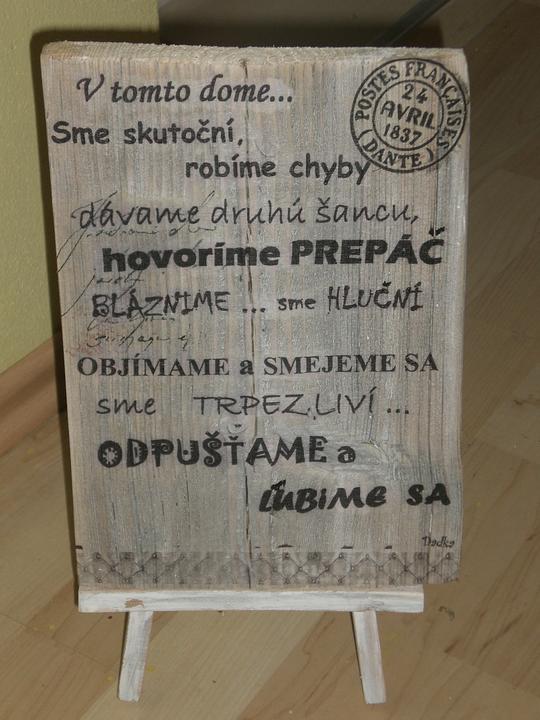 V tomto dome...
Sme skutoční,
robíme chyby
dávame druhú šancu,
hovoríme PREPÁČ
BLÁZNIME ... sme HLUČNÍ
OBJÍMAME a SMEJEME SA
sme TRPEZLIVÍ ...
ODPUŠŤAME a
ĽUBIME SA
Dadka
POSTES FRANÇAISES
24
AVRIL
1837
( DANTE )